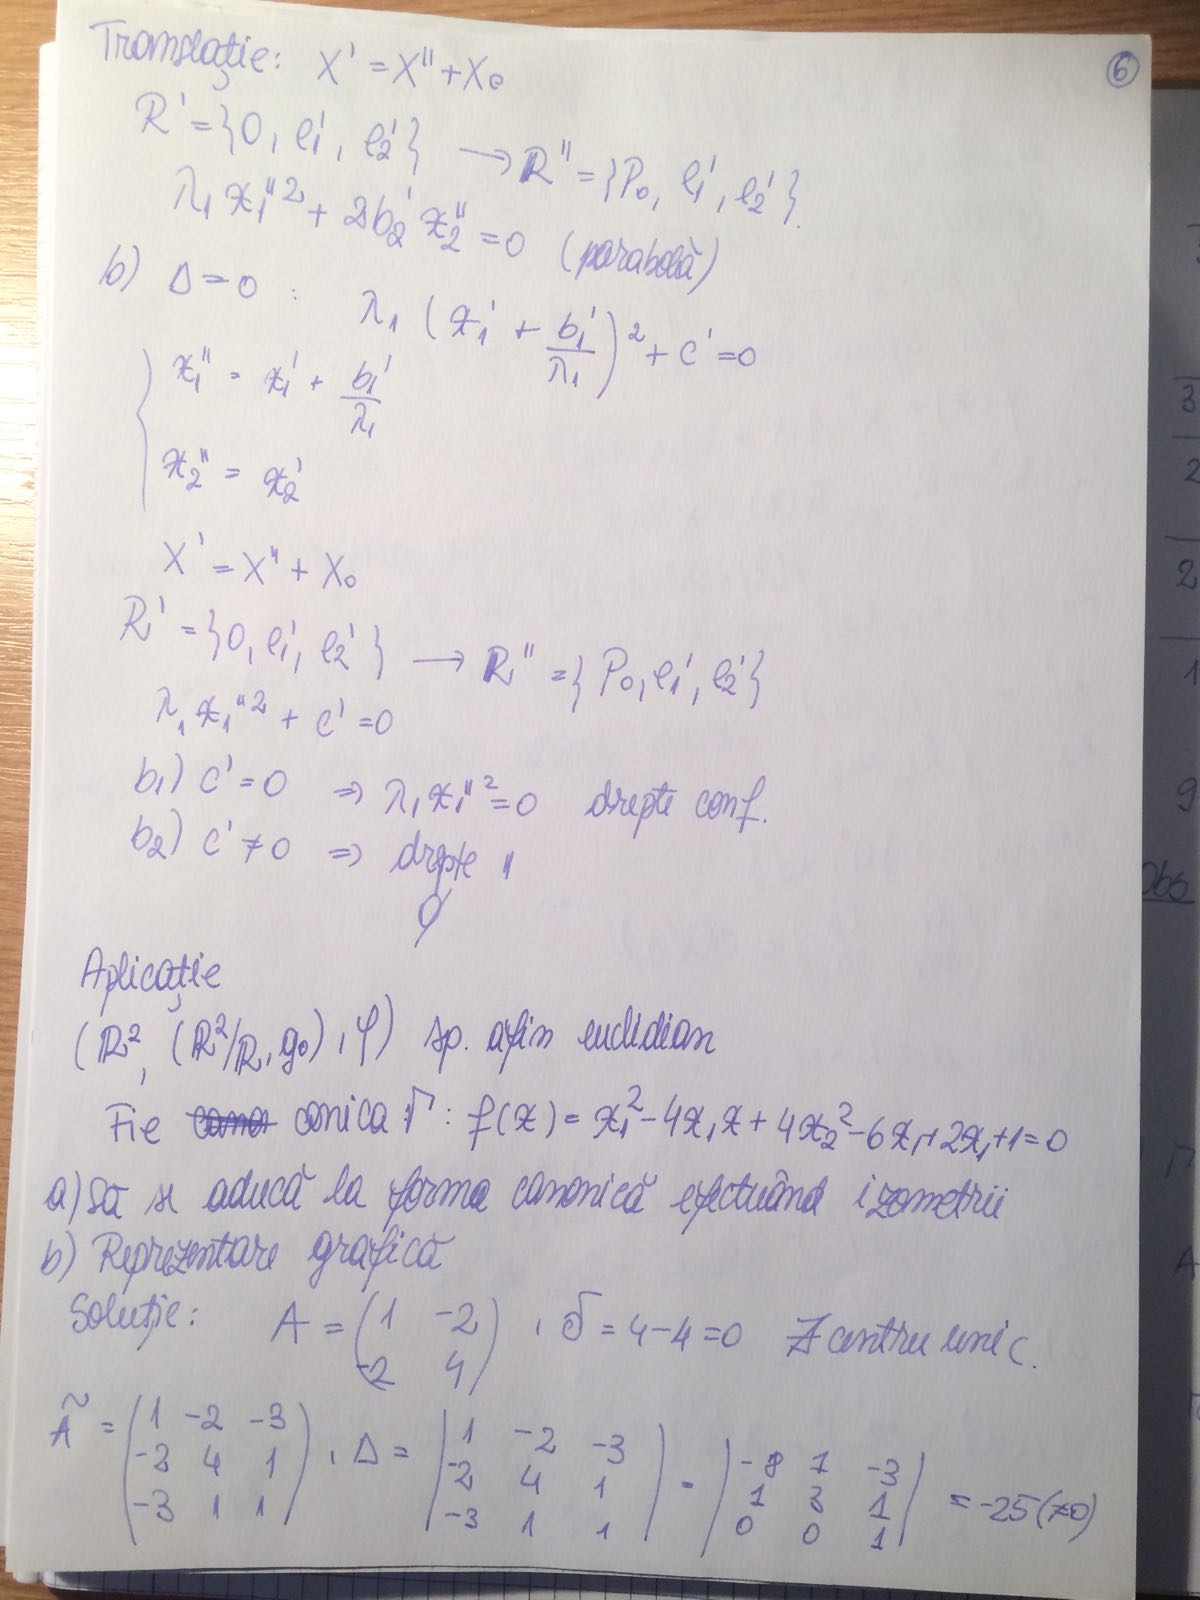 6
Translație: X' = X'' + X₀
R' = {0, e₁', e₂'} → R'' = {P₀, e₁', e₂'}.
λ₁ x₁''² + 2b₂' x₂'' = 0 (parabolă)
b) Δ = 0 : λ₁ (x₁' + b₁'/λ₁)² + c' = 0
{ x₁'' = x₁' + b₁'/λ₁
x₂'' = x₂'
X' = X'' + X₀
R' = {0, e₁', e₂'} → R'' = {P₀, e₁', e₂'}
λ₁ x₁''² + c' = 0
b₁) c' = 0 ⇒ λ₁ x₁''² = 0 drepte conf.
b₂) c' ≠ 0 ⇒ drepte ||
∅
Aplicație
(ℝ², (ℝ²/ℝ, g₀), φ) sp. afin euclidian
Fie conica Γ : f(x) = x₁² - 4x₁x + 4x₂² - 6x₁ + 2x₁ + 1 = 0
a) Să se aducă la forma canonică efectuând izometrii
b) Reprezentare grafică
Soluție: A = (1 -2 / -2 4) , δ = 4 - 4 = 0 ∄ centru unic.
Ã = (1 -2 -3 / -2 4 1 / -3 1 1) , Δ = |1 -2 -3 / -2 4 1 / -3 1 1| = |-8 1 -3 / 1 3 1 / 0 0 1| = -25 (≠0)